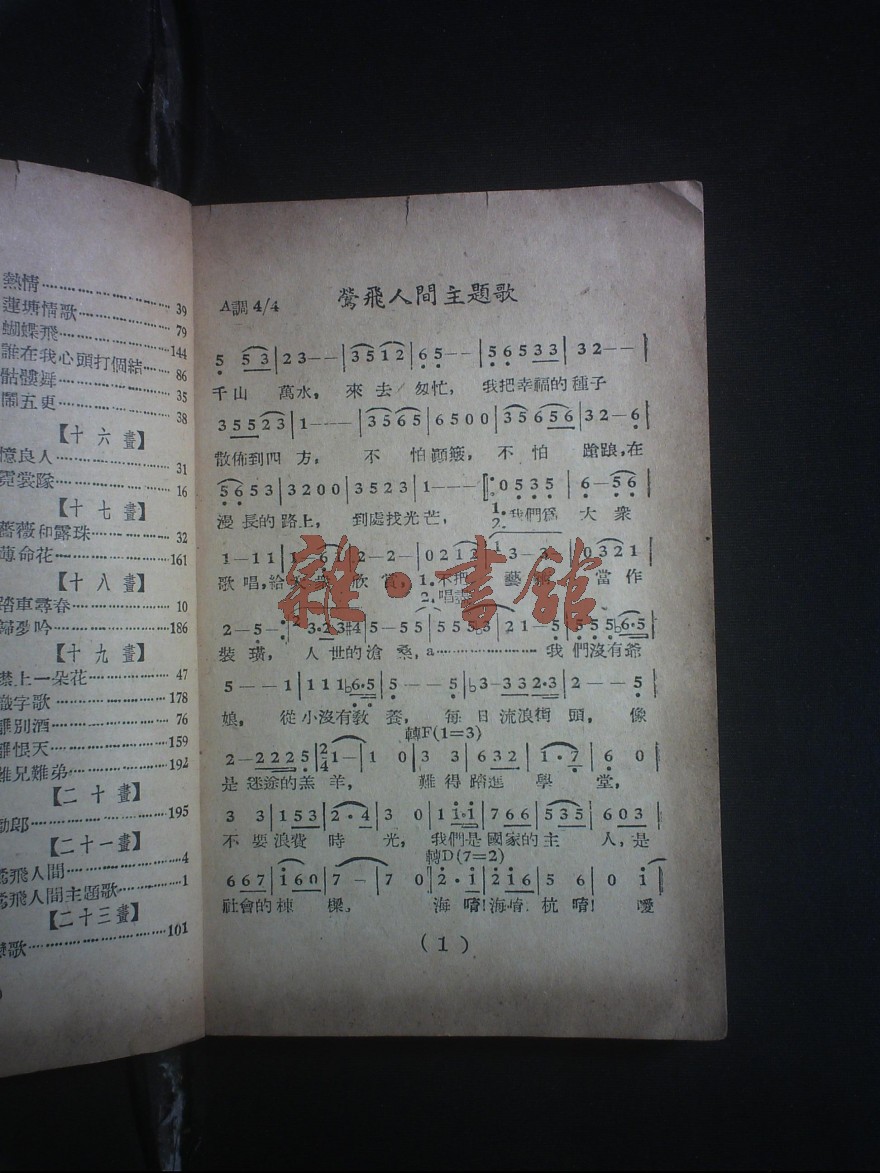 熱情 39
蓮塘情歌 79
蝴蝶飛 144
誰在我心頭打個結 86
骷髏舞 35
鬧五更 38
【十六畫】
憶良人 31
霓裳隊 16
【十七畫】
薔薇和露珠 32
薄命花 161
【十八畫】
踏車尋春 10
歸夢吟 186
【十九畫】
襟上一朵花 47
識字歌 178
離別酒 76
離恨天 159
難兄難弟 192
【二十畫】
郎 195
【二十一畫】
鶯飛人間 4
鶯飛人間主題歌 1
【二十三畫】
戀歌 101
鶯飛人間主題歌
A調 4/4
5 53|23--|3512|65--|56533|32--|
千山 萬水, 來去 匆忙, 我把幸福的種子
35523|1---|3565|6500|35656|32-6|
散佈到四方, 不 怕顚簸, 不 怕 蹌踉,在
5653|3200|3523|1---|0535|6-56|
漫長的路上, 到處找光芒, 1.2.我們爲 大衆
1-11|1-61|2-2-|0212|3-3-|0321|
歌唱,給大衆 欣賞, 1.不把 藝術 當作
2.唱
2-5-|
裝璜, 人世的滄桑,a 我們沒有爺
5--1|111♭6·5|5--5|♭3-332·3|2--5|
娘, 從小沒有敎養, 每日流浪街頭, 像
轉F(1=3)
2-2225|2/4 1-|1 0|3 3|632|1·7|6 0|
是迷途的羔羊, 難得踏進 學 堂,
3 3|153|2·4|3 0|1 1·1|766|535|603|
不要浪費 時 光, 我們是國家的主 人,是
轉D(7=2)
667|160|7-|7 0|2·1|216|5 6|0 1|
社會的棟 樑, 海唷!海唷 杭唷! 噯
(1)
雜·書館